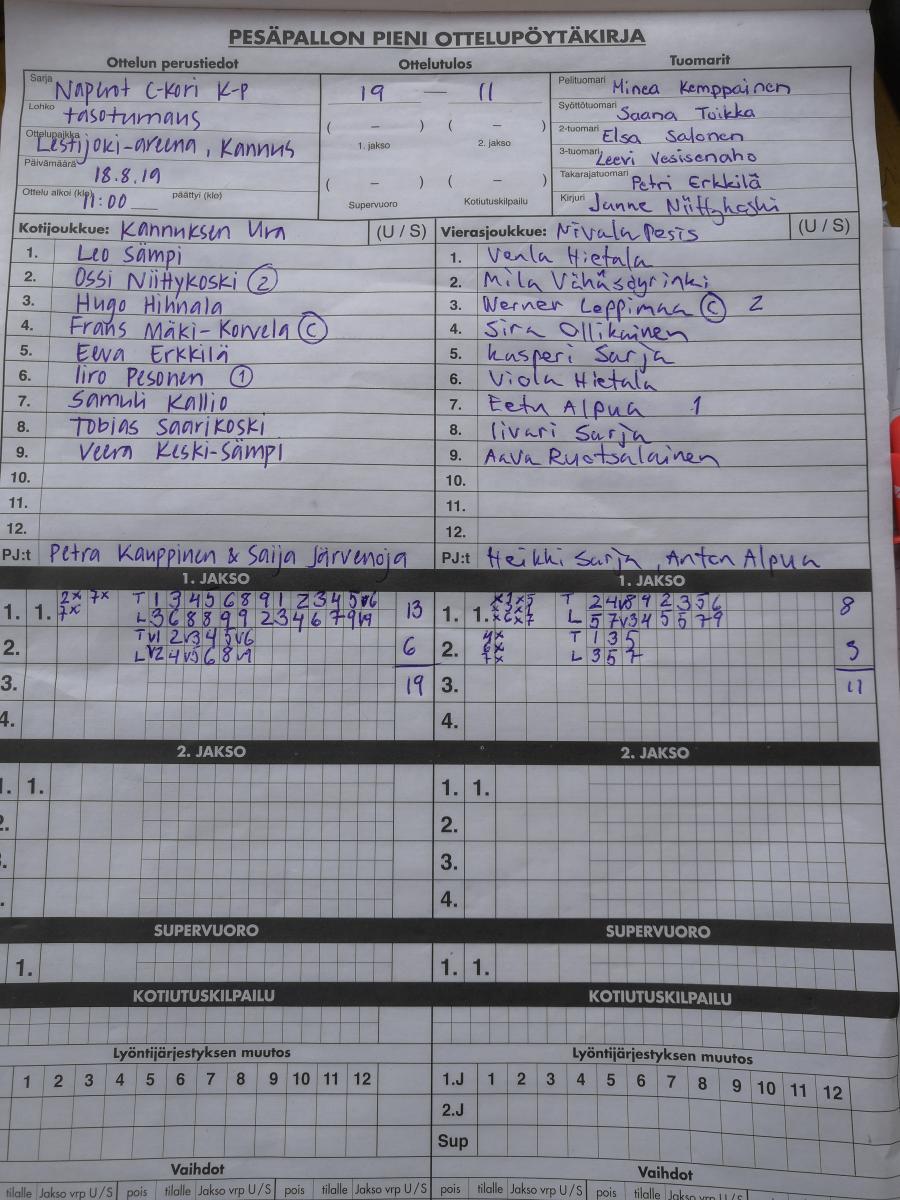 PESÄPALLON PIENI OTTELUPÖYTÄKIRJA
Ottelun perustiedot Ottelutulos Tuomarit
Sarja Naperot C-Kori K-P
Lohko tasoturnaus
Ottelupaikka Lestijoki-areena, Kannus
Päivämäärä 18.8.19
Ottelu alkoi (klo) 11:00 päättyi (klo)
19 — 11
( – ) ( – )
1. jakso 2. jakso
( – ) ( – )
Supervuoro Kotiutuskilpailu
Pelituomari Minea Kemppainen
Syöttötuomari Saana Toikka
2-tuomari Elsa Salonen
3-tuomari Leevi Vesisenaho
Takarajatuomari Petri Erkkilä
Kirjuri Janne Niittykoski
Kotijoukkue: Kannuksen Ura (U / S) Vierasjoukkue: Nivala Pesis (U / S)
1. Leo Sämpi 1. Venla Hietala
2. Ossi Niittykoski 2 2. Mila Vähäsöyrinki
3. Hugo Hihnala 3. Werner Leppimaa C 2
4. Frans Mäki-Korvela C 4. Sira Ollikainen
5. Eeva Erkkilä 5. Kasperi Sarja
6. Iiro Pesonen 1 6. Viola Hietala
7. Samuli Kallio 7. Eetu Alpua 1
8. Tobias Saarikoski 8. Iivari Sarja
9. Veera Keski-Sämpi 9. Aava Ruotsalainen
10. 10.
11. 11.
12. 12.
PJ:t Petra Kauppinen & Saija Järvenoja PJ:t Heikki Sarja, Anton Alpua
1. JAKSO 1. JAKSO
1. 1. 2x 7x T 1 3 4 5 6 8 9 1 2 3 4 5 v6 13 1. 1. T 2 4 v8 9 2 3 5 6 8
7x L 3 6 8 8 9 9 2 3 4 6 7 9 v9 L 5 7 v3 4 5 5 7 9
2. T v1 2 v3 4 5 v6 6 2. 4x T 1 3 5 3
L v2 4 v5 6 8 v9 6x 7x L 3 5 7
3. 19 3. 11
4. 4.
2. JAKSO 2. JAKSO
1. 1. 1. 1.
2. 2.
3.
4.
SUPERVUORO SUPERVUORO
1. 1. 1.
KOTIUTUSKILPAILU KOTIUTUSKILPAILU
Lyöntijärjestyksen muutos Lyöntijärjestyksen muutos
1 2 3 4 5 6 7 8 9 10 11 12 1.J 1 2 3 4 5 6 7 8 9 10 11 12
2.J
Sup
Vaihdot Vaihdot
tilalle Jakso vrp U/S pois tilalle Jakso vrp U/S pois tilalle Jakso vrp U/S pois tilalle Jakso vrp U/S pois tilalle Jakso vrp U/S